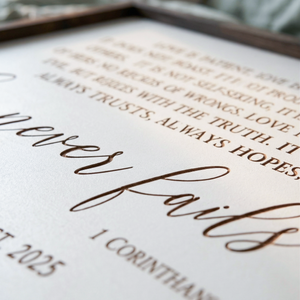 LOVE IS PATIENT, LOVE IS
IT DOES NOT BOAST IT IS NOT PROU
OTHERS, IT IS NOT SELF-SEEKING, IT'S
NO RECORD OF WRONGS. LOVE
EVIL BUT REJOICES WITH THE TRUTH. IT
ALWAYS TRUSTS, ALWAYS HOPES,
never fails
EST. 2025
1 CORINTHIANS